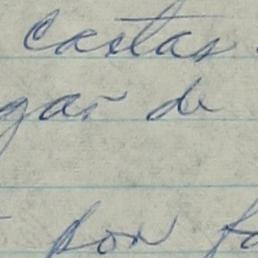 castas
gar de
por fa